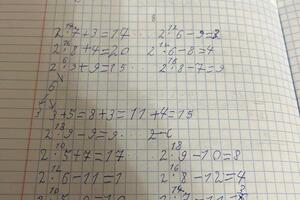 8
14 12
2·7+3=17 2·6-9=8
16 12
2·8+4=20 2·6-8=4
6 16
2·3+9=15 2·8-7=9
6
3+5=8+3=11+4=15
18
2·9-9=9 2-6
10 18
2·5+7=17 2·9-10=8
12 16
2·6-11=1 2·8-12=4
10 14